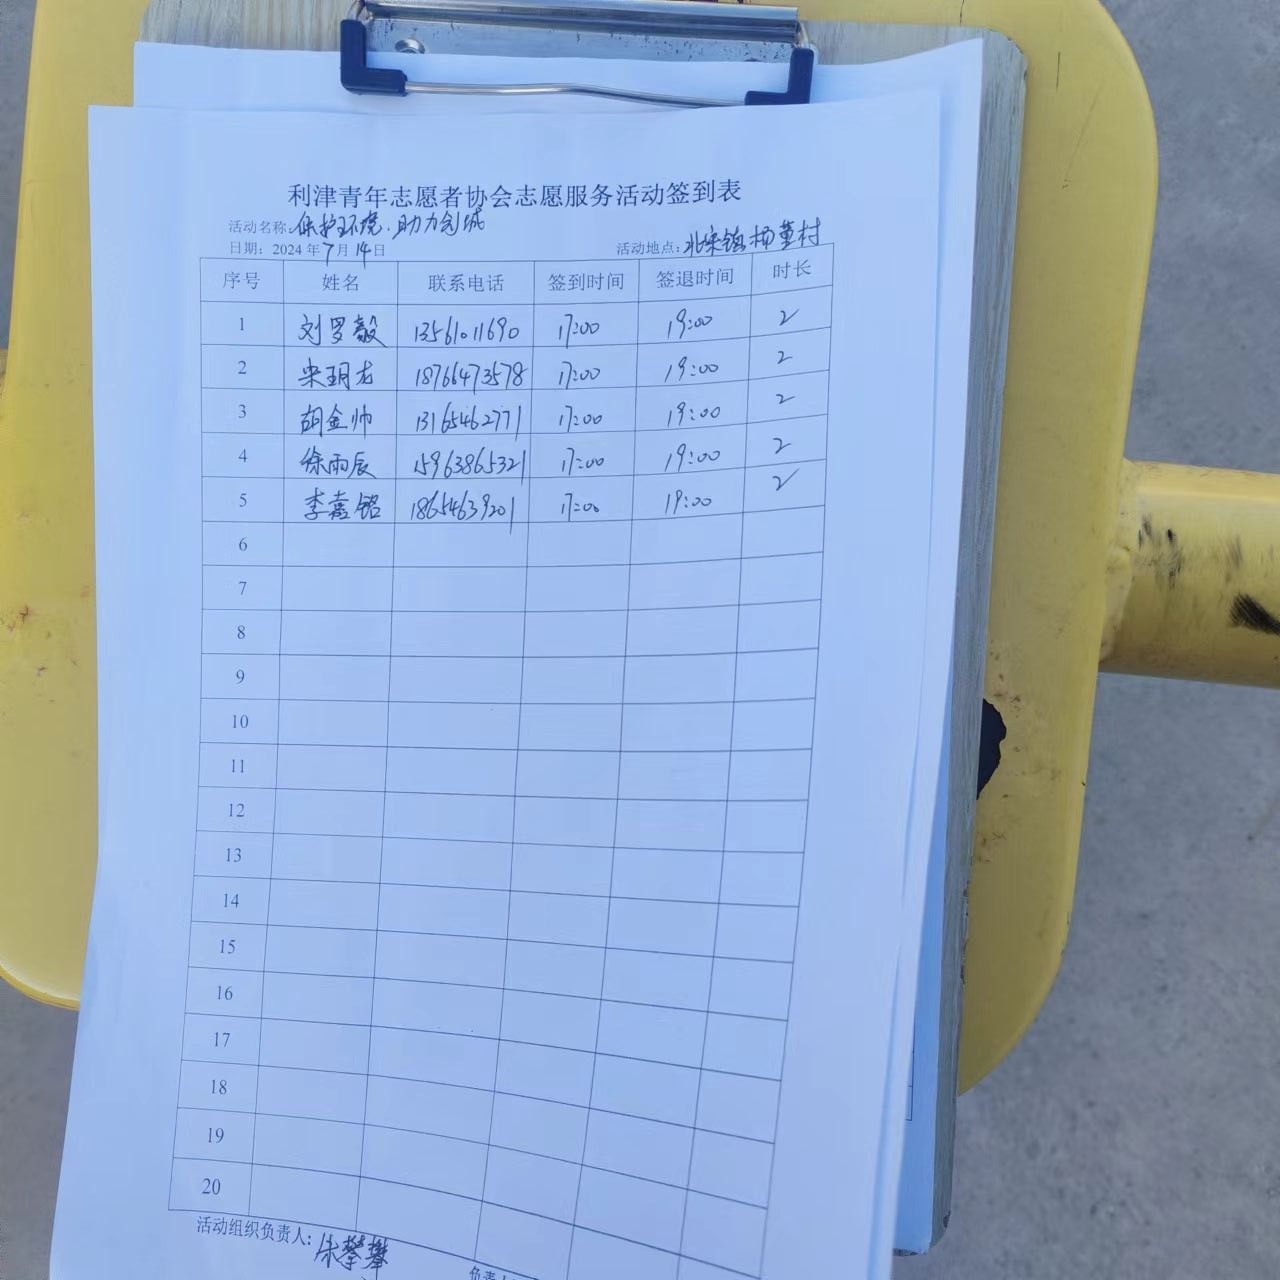 利津青年志愿者协会志愿服务活动签到表
活动名称:保护环境.助力创城
日期: 2024年7月14日 活动地点:北宋镇杨董村
序号 姓名 联系电话 签到时间 签退时间 时长
1 刘罗毅 13561011690 17:00 19:00 2
2 宋玥龙 18766473578 17:00 19:00 2
3 胡金帅 13165462771 17:00 19:00 2
4 徐雨辰 15963865321 17:00 19:00 2
5 李嘉铭 18654639201 17:00 19:00 2
6
7
8
9
10
11
12
13
14
15
16
17
18
19
20
活动组织负责人: 攀攀
负责人